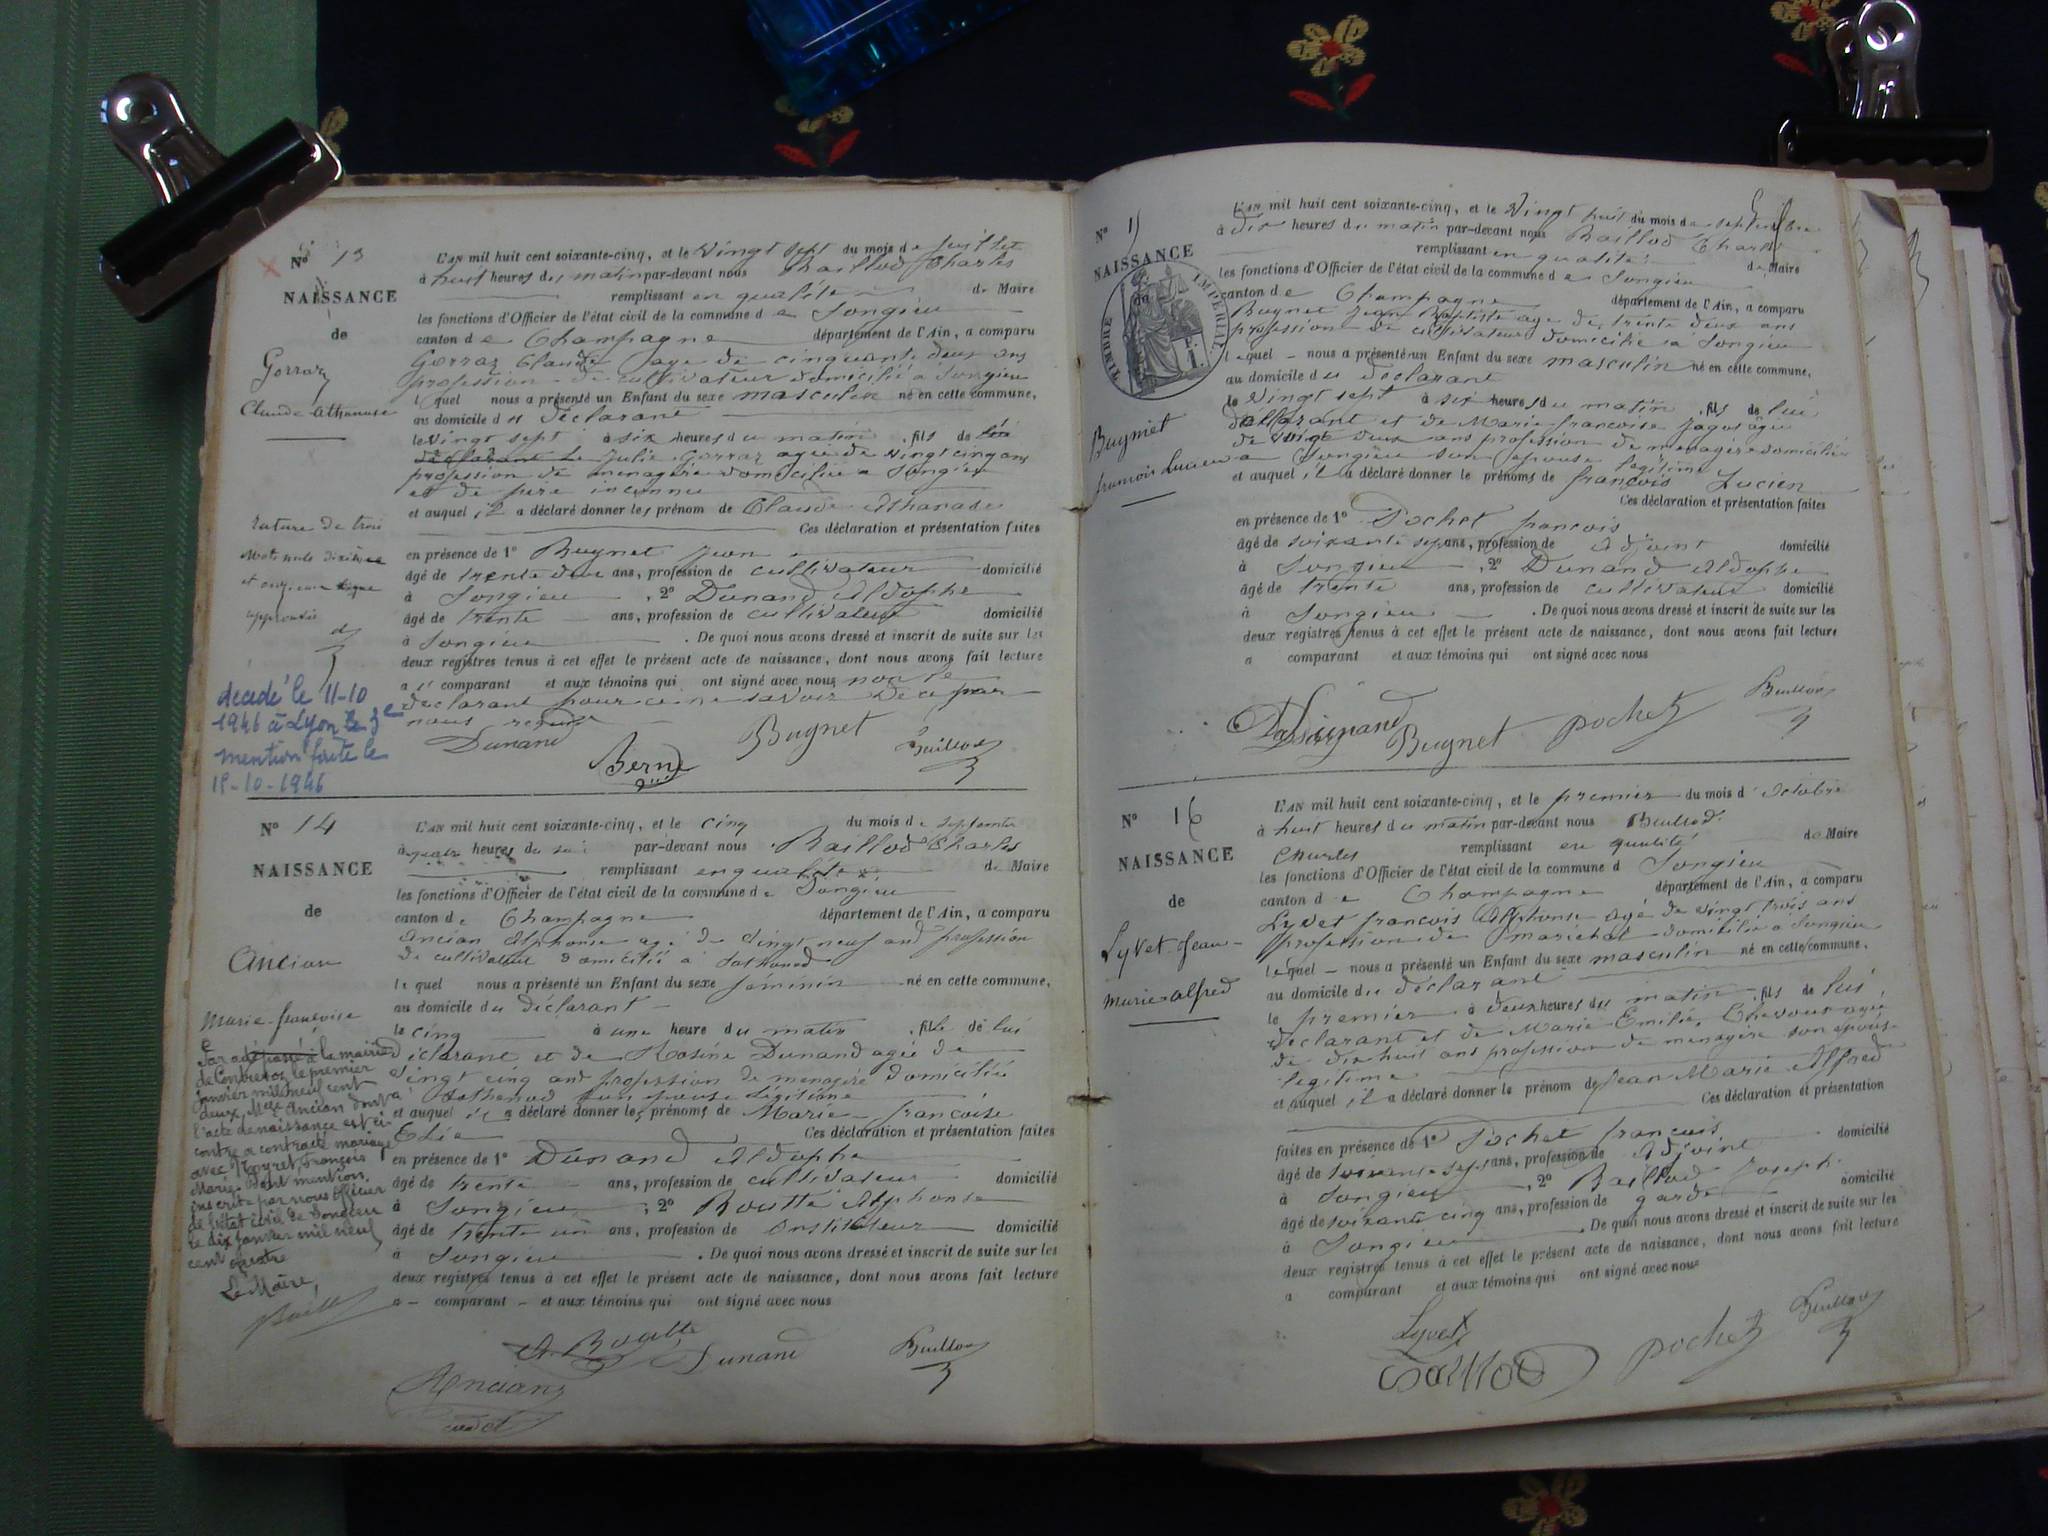 N° 13
NAISSANCE
de
Gorraz
Claude Athanase
L'AN mil huit cent soixante-cinq, et le Vingt sept du mois de juillet
à huit heures du matin par-devant nous Baillod Charles
remplissant en qualité de Maire
les fonctions d'Officier de l'état civil de la commune de Songieu
canton de Champagne département de l'Ain, a comparu
Gorraz Claude age de cinquante deux ans
profession de cultivateur domicilié a Songieu
lequel nous a présenté un Enfant du sexe masculin né en cette commune,
au domicile du déclarant
le Vingt sept à six heures du matin, fils de lui
déclarant de Julie Gorraz agée de vingt cinq ans
profession de menagère domiciliée a Songieu
et de père inconnu
et auquel il a déclaré donner les prénom de Claude Athanase
Ces déclaration et présentation faites
en présence de 1° Bugnet Jean
âgé de trente deux ans, profession de cultivateur domicilié
à Songieu, 2° Dunand Aldophe
âgé de trente ans, profession de cultivateur domicilié
à Songieu. De quoi nous avons dressé et inscrit de suite sur les
deux registres tenus à cet effet le présent acte de naissance, dont nous avons fait lecture
au comparant et aux témoins qui ont signé avec nous non le
déclarant pour ce ne savoir De ce par
nous requis
Dunand Berne Bugnet Baillod
rature de trois
mots nuls dixième
et onzième ligne
approuvée
décédé le 11-10
1946 à Lyon le 3e
mention faite le
18-10-1946
N° 14
NAISSANCE
de
Ancian
Marie-françoise
L'AN mil huit cent soixante-cinq, et le cinq du mois de septembre
à quatre heures du soir par-devant nous Baillod Charles
remplissant en qualité de Maire
les fonctions d'Officier de l'état civil de la commune de Songieu
canton de Champagne département de l'Ain, a comparu
Ancian Alphonse agé de Vingt neuf ans profession
de cultivateur domicilié à Sothonod
lequel nous a présenté un Enfant du sexe feminin né en cette commune,
au domicile du déclarant
le cinq à une heure du matin, fille de lui
déclarant et de Rosine Dunand agée de
Vingt cinq ans profession de menagère domiciliée
a Sothonod son epouse légitime
et auquel il a déclaré donner les prénoms de Marie françoise
Eléa Ces déclaration et présentation faites
en présence de 1° Dunand Aldophe
âgé de trente ans, profession de cultivateur domicilié
à Songieu, 2° Boutté Alphonse
âgé de trente un ans, profession de Instituteur domicilié
à Songieu. De quoi nous avons dressé et inscrit de suite sur les
deux registres tenus à cet effet le présent acte de naissance, dont nous avons fait lecture
a comparant et aux témoins qui ont signé avec nous
A. Boutté Dunand Baillod
Ancian
Par acte passé à la mairie
de Contrevoz le premier
janvier mil neuf cent
deux, Melle Ancian dont
l'acte de naissance est ci
contre a contracté mariage
avec Peyret, françois
Marie. Dont mention
inscrite par nous officier
de l'état civil de Songieu
le dix janvier mil neuf
cent quatre
Le Maire,
N° 15
NAISSANCE
de
TIMBRE IMPERIAL
Bugniet
francois Lucien
L'AN mil huit cent soixante-cinq, et le Vingt huit du mois de septembre
à dix heures du matin par-devant nous Baillod Charles
remplissant en qualité de Maire
les fonctions d'Officier de l'état civil de la commune de Songieu
canton de Champagne département de l'Ain, a comparu
Bugnet Jean Baptiste age de trente deux ans
profession de cultivateur domicilié a Songieu
lequel nous a présenté un Enfant du sexe masculin né en cette commune,
au domicile du déclarant
le Vingt sept à six heures du matin, fils de lui
déclarant et de Marie françoise Jagos agée
de vingt deux ans profession de menagère domiciliée
a Songieu son epouse legitime
et auquel il a déclaré donner le prénoms de françois Lucien
Ces déclaration et présentation faites
en présence de 1° Pochet françois
âgé de soixante sept ans, profession de Adjoint domicilié
à Songieu, 2° Dunand Aldophe
âgé de trente ans, profession de cultivateur domicilié
à Songieu. De quoi nous avons dressé et inscrit de suite sur les
deux registres tenus à cet effet le présent acte de naissance, dont nous avons fait lecture
a comparant et aux témoins qui ont signé avec nous
Dunand Bugnet Pochet Baillod
N° 16
NAISSANCE
de
Lyvet Jean-
Marie alfred
L'AN mil huit cent soixante-cinq, et le premier du mois d'Octobre
à huit heures du matin par-devant nous Baillod
Charles remplissant en qualité de Maire
les fonctions d'Officier de l'état civil de la commune d Songieu
canton de Champagne département de l'Ain, a comparu
Lyvet françois Alphonse agé de vingt trois ans
profession de maréchal domicilié a Songieu
lequel nous a présenté un Enfant du sexe masculin né en cette commune.
au domicile du déclarant
le premier à deux heures du matin, fils de lui
declarant et de Marie Emilie Chevous agée
de dix huit ans profession de menagère son epouse
legitime
et auquel il a déclaré donner le prénom de Jean Marie Alfred
Ces déclaration et présentation
faites en présence de 1° Pochet françois
âgé de soixante sept ans, profession de Adjoint domicilié
à Songieu, 2° Baillod Joseph
âgé de soixante cinq ans, profession de garde domicilié
à Songieu. De quoi nous avons dressé et inscrit de suite sur les
deux registres tenus à cet effet le présent acte de naissance, dont nous avons fait lecture
a comparant et aux témoins qui ont signé avec nous
Lyvet
Baillod Pochet Baillod